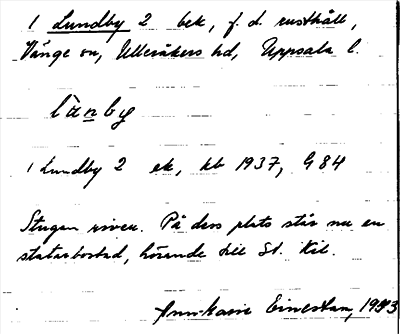 1 Lundby 2 bek, f. d. rusthåll,
Vänge sn, Ulleråkers hd, Uppsala l.
lùnby
1 Lundby 2 ek, kb 1937, G 84
Stugan riven. På dess plats står nu en
statarbostad, hörande till St. Kil.
Ann-Marie 1943